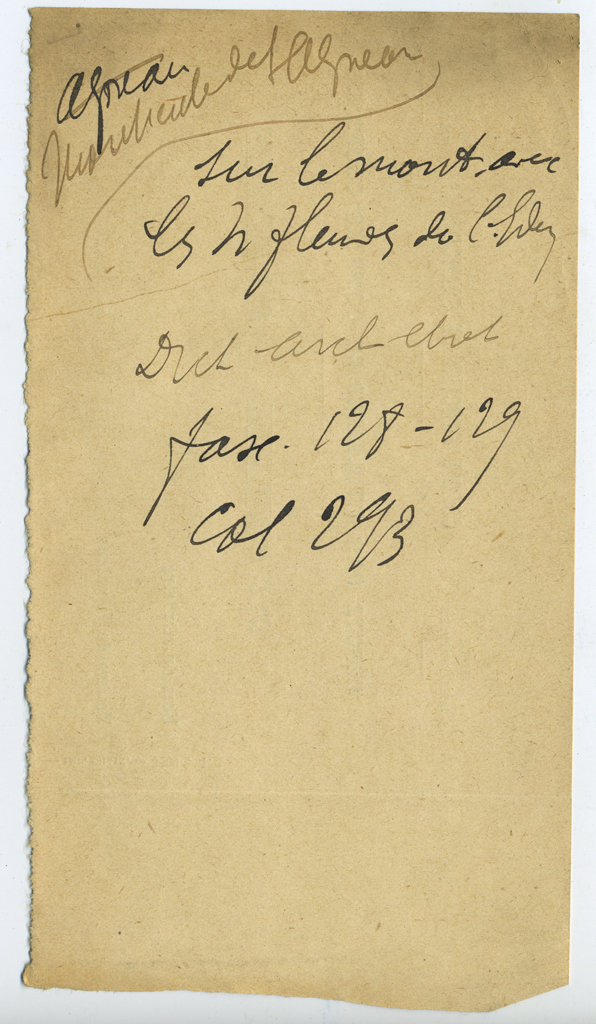 Agneau
Monticule de l'Agneau
sur le mont, avec
les 4 fleuves de l'Eden
Dict arch chret
fasc. 128-129
Col 293